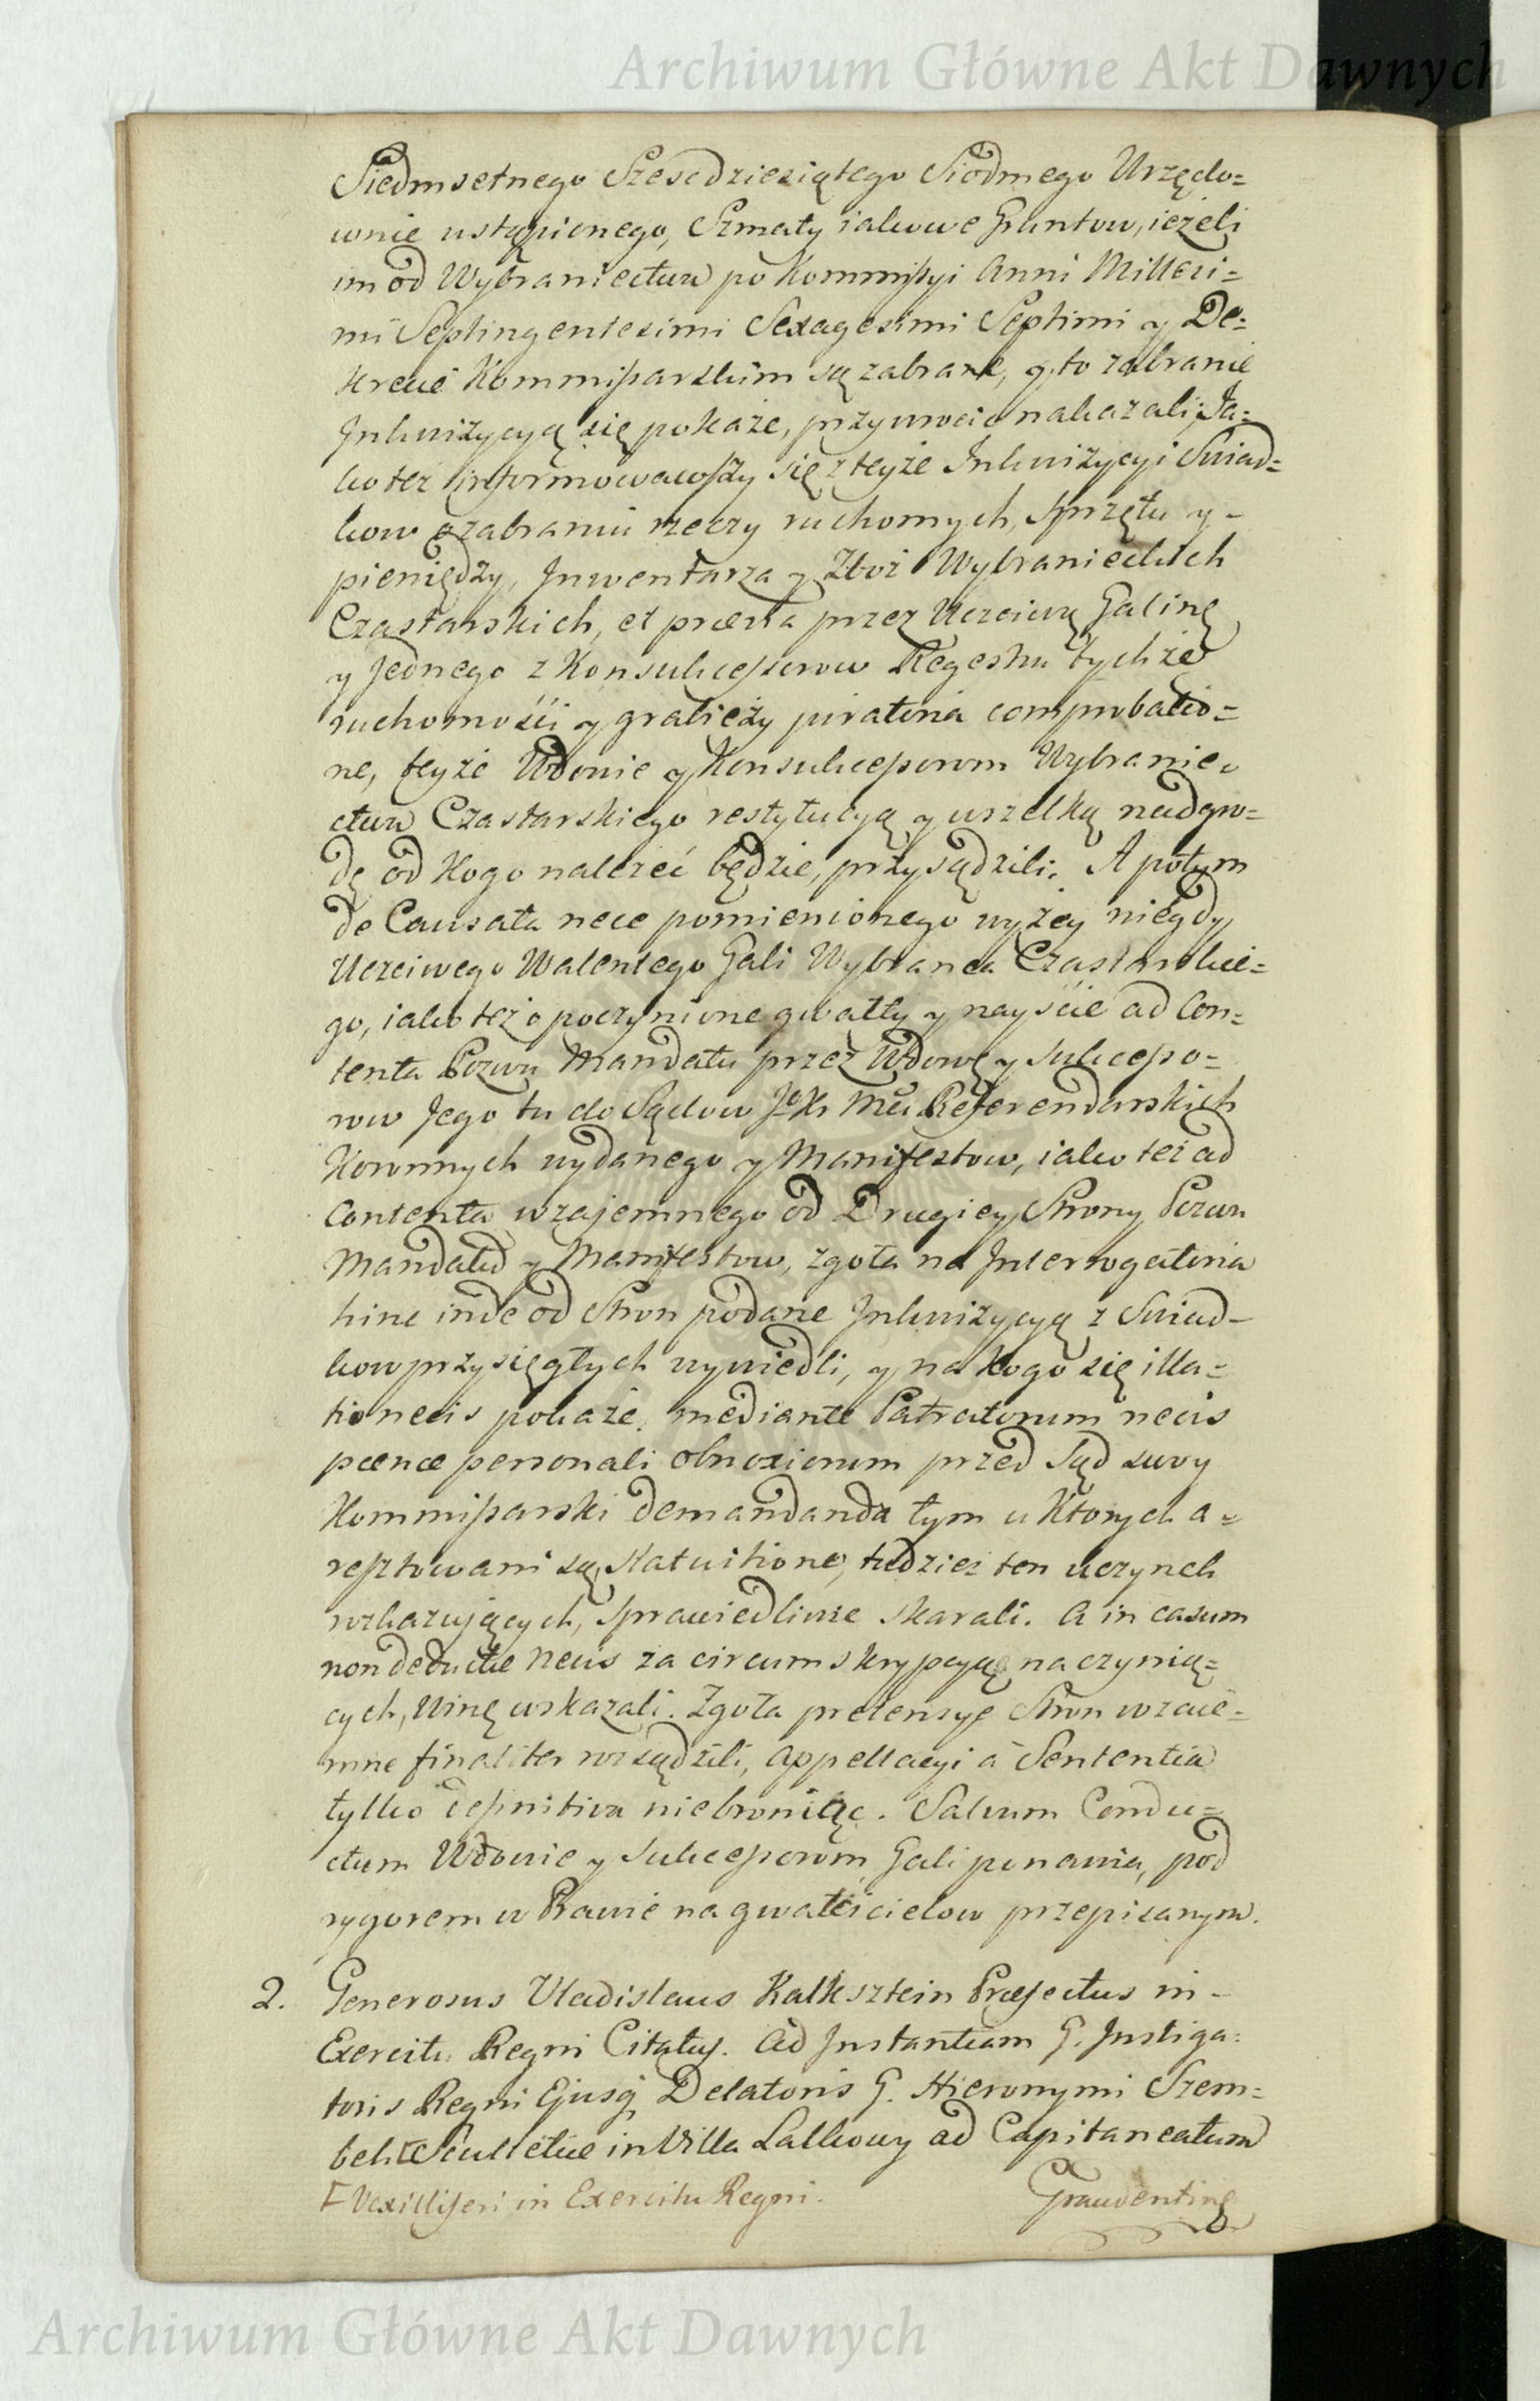 Archiwum Główne Akt Dawnych
Siedmsetnego Szescdziesiątego Siodmego Urzędo=
wnie ustąpionego, Szmaty iakowe Gruntow, ieżeli
im od Wybraniectwa po Kommissyi Anni Millesi=
mi Septingentesimi Sexagesimi Septimi y De=
krecie Kommissarskim są zabrane, y to zabranie
Inkwizycyą się pokaże, przywrocic nakazali; Ja=
ko też informowawszy się z teyże Inkwizycyi Swiad=
kow o zabraniu rzeczy ruchomych, Sprzętu y -
pieniędzy, Inwentarza y Zboż Wybranieckich
Czastarskich, et praevia przez Uczciwą Galinę
y Jednego z Konsukcessorow Regestru tychże
ruchomości y grabieży juratoria comprobatio=
ne, teyże Wdowie y Konsukcessorom Wybranie=
ctwa Czastarskiego restytucyą y wszelką nadgro=
dę od Kogo należeć będzie, przysądzili; A potym
de Causata nece pomienionego wyżey niegdy
Uczciwego Walentego Gali Wybranca Czastarskie=
go, iako też o poczynione gwałty y nayście ad Con=
tenta Pozwu Mandatu przez Wdowę y Sukcesso=
row Jego tu do Sądow JeKr Mci Referendarskich
Koronnych wydanego y Manifestow, iako też ad
Contenta wzajemnego od Drugiey Strony Pozwu
Mandatu y Manifestow, zgoła na Interrogatoria
hinc inde od Stron podane Inkwizycyą z Swiad-
kow przysięgłych wywiedli, y na kogo się illa=
tio necis pokaże, mediante Patratorum necis
poenae personali obnoxiorum przed Sąd swoy
Kommissarski demandanda tym u Ktorych a=
resztowani są Statuitione, tudzież ten uczynek
rozkazujących, sprawiedliwie skarali. A in casum
non deductae Necis za circumskrypcyą na czynią=
cych, Winę wskazali. Zgoła pretensye Stron wzaie=
mne finaliter rozsądzili, Appellacyi a Sententia
tylko definitiva niebroniąc. Salvum Condu=
ctum Wdowie y Sukcessorom Gali ponawia, pod
rygorem w Prawie na gwałcicielow przepisanym.
2. Generosus Vladislaus Kalksztein Praefectus in -
Exercitu Regni Citatus. Ad Instantiam G. Instiga=
toris Regni Ejusq Delatoris G. Hieronymi Szem=
bek Γ Scultetiae in Villa Lalkowy ad Capitaneatum
Γ Vexilliferi in Exercitu Regni.
Graudentin
Archiwum Główne Akt Dawnych